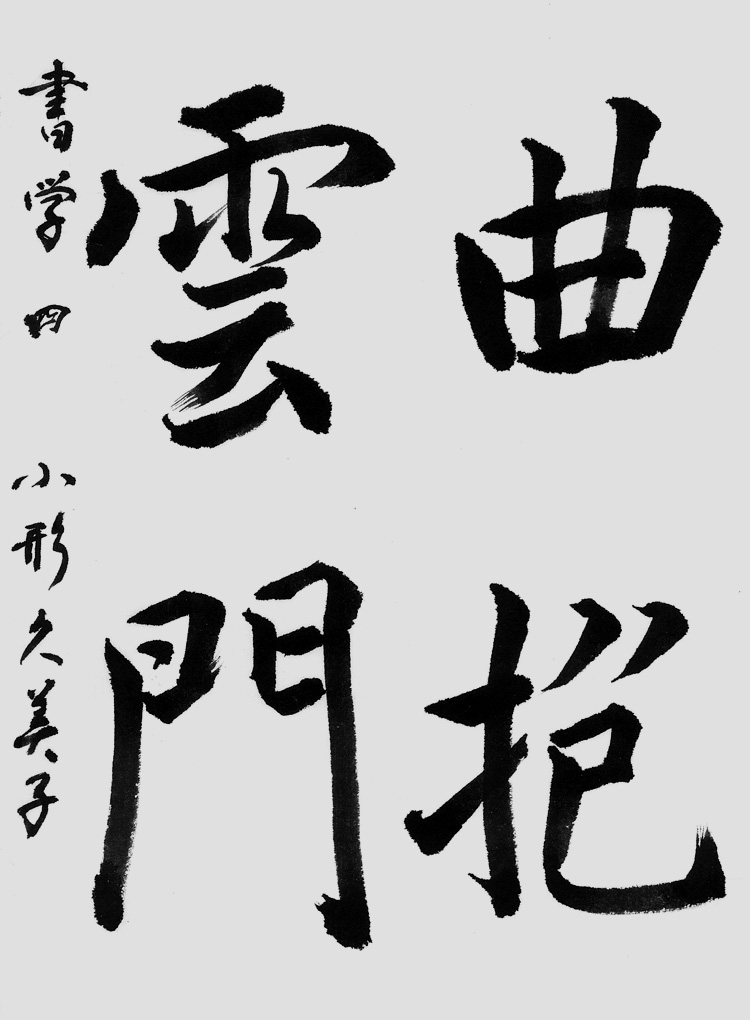 曲挹
雲門
書学 四 小形久美子